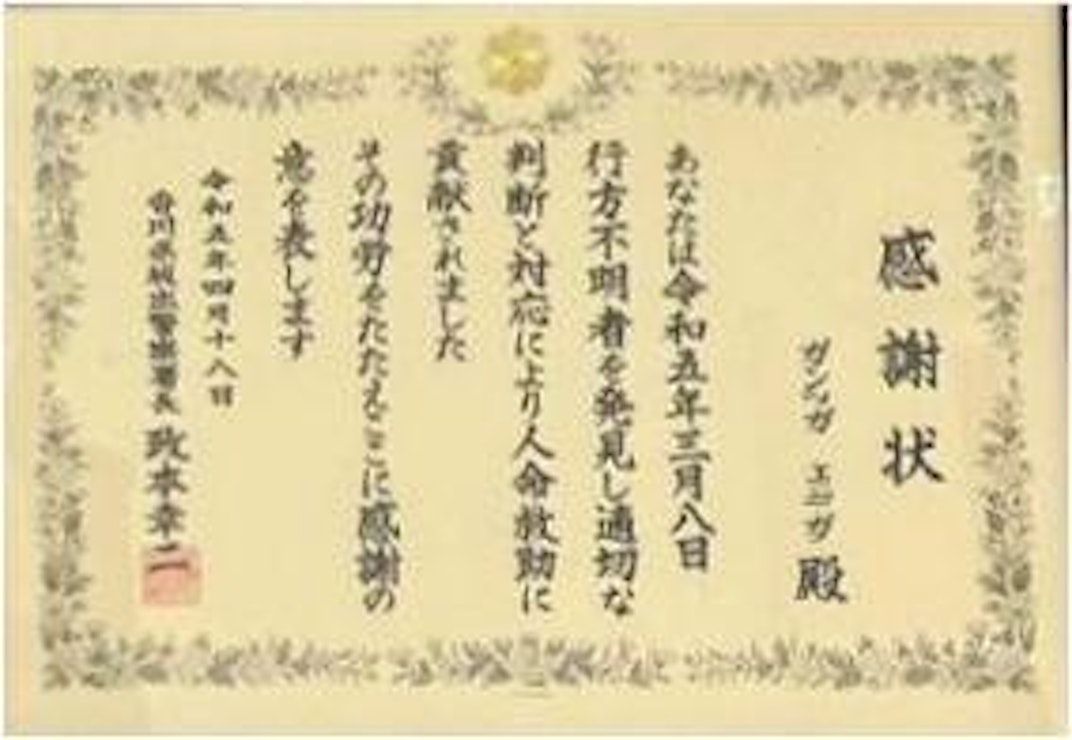 感謝状
ガンガ エニガ 殿
あなたは令和五年三月八日
行方不明者を発見し適切な
判断と対応により人命救助に
貢献されました
その功労をたたえここに感謝の
意を表します
令和五年四月十八日
香川県坂出警察署長 政本幸二